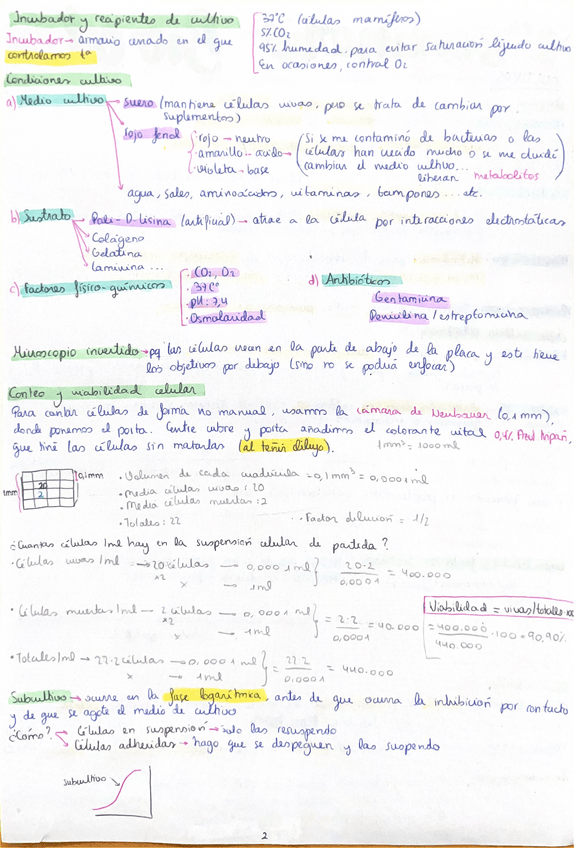 Incubador y recipientes de cultivo
Incubador → armario cerrado en el que controlamos tª
37ºC (células mamíferos)
5% CO2
95% humedad, para evitar saturación líquido cultivo
En ocasiones, control O2
Condiciones cultivo
a) Medio cultivo → suero (mantiene células vivas, pero se trata de cambiar por suplementos)
→ rojo fenol
· rojo → neutro
· amarillo → ácido →
· violeta → base
(Si se me contaminó de bacterias o las células han crecido mucho o se me olvidó cambiar el medio cultivo...
liberan metabolitos)
→ agua, sales, aminoácidos, vitaminas, tampones... etc.
b) Sustrato → Poli-D-Lisina (artificial) → atrae a la célula por interacciones electrostáticas
→ Colágeno
→ Gelatina
→ Laminina ...
c) Factores físico-químicos
· CO2, O2
· 37Cº
· pH: 7,4
· Osmolaridad
d) Antibióticos
Gentamicina
Penicilina/estreptomicina
Microscopio invertido → pq las células crecen en la parte de abajo de la placa y este tiene
los objetivos por debajo (sino no se podría enfocar)
Conteo y viabilidad celular
Para contar células de forma no manual, usamos la cámara de Neubauer (0,1 mm),
donde ponemos el porta. Entre cubre y porta añadimos el colorante vital 0,4% Azul tripán,
que tiñe las células sin matarlas (al teñir diluyo).
1mm³ = 1000 ml
0,1mm
1mm
20
2
· Volumen de cada cuadrícula = 0,1mm³ = 0,0001 ml
· Media células vivas: 20
· Media células muertas: 2
· Totales: 22
· Factor dilución = 1/2
¿Cuantas células/ml hay en la suspensión celular de partida?
· Células vivas/ml → 20 células → 0,0001 ml
·2
x → 1ml
= 20·2 / 0,0001 = 400.000
· Células muertas/ml → 2 células → 0,0001 ml
·2
x → 1ml
= 2·2 / 0,0001 = 40.000
Viabilidad = vivas/totales·100
= 400.000 / 440.000 · 100 = 90,90%
· Totales/ml → 22·2 células → 0,0001 ml
x → 1ml
= 22·2 / 0,0001 = 440.000
Subcultivo → ocurre en la fase logarítmica, antes de que ocurra la inhibición por contacto
y de que se agote el medio de cultivo
¿Cómo? → Células en suspensión → solo las resuspendo
→ Células adheridas → hago que se despeguen y las suspendo
subcultivo
2